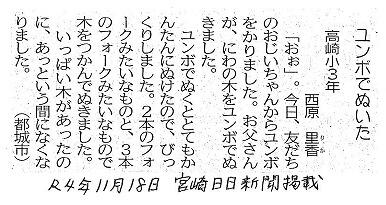 ユンボでぬいた
高崎小3年
西原　里香
「おぉ」。今日、友だち
のおじいちゃんからユンボ
をかりました。お父さん
が、にわの木をユンボでぬ
きました。
ユンボでぬくととてもか
んたんにぬけたので、びっ
くりしました。2本のフォ
ークみたいなものと、3本
のフォークみたいなもので
木をつかんでぬきました。
いっぱい木があったの
に、あっという間になくな
りました。
（都城市）
R4年11月18日 宮崎日日新聞掲載